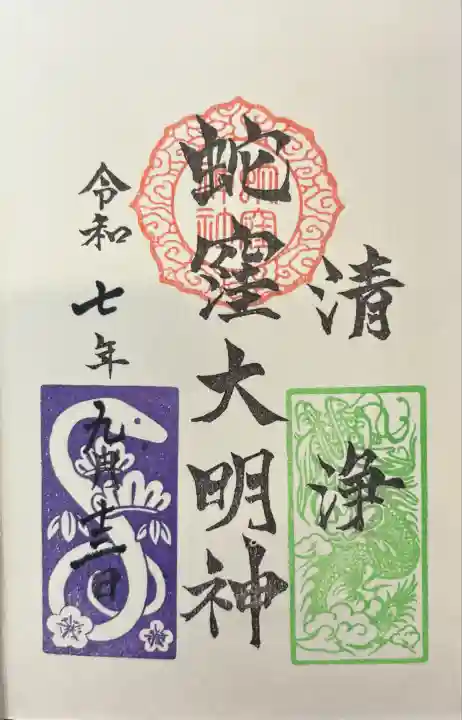 清浄
蛇窪大明神
令和七年九月十三日